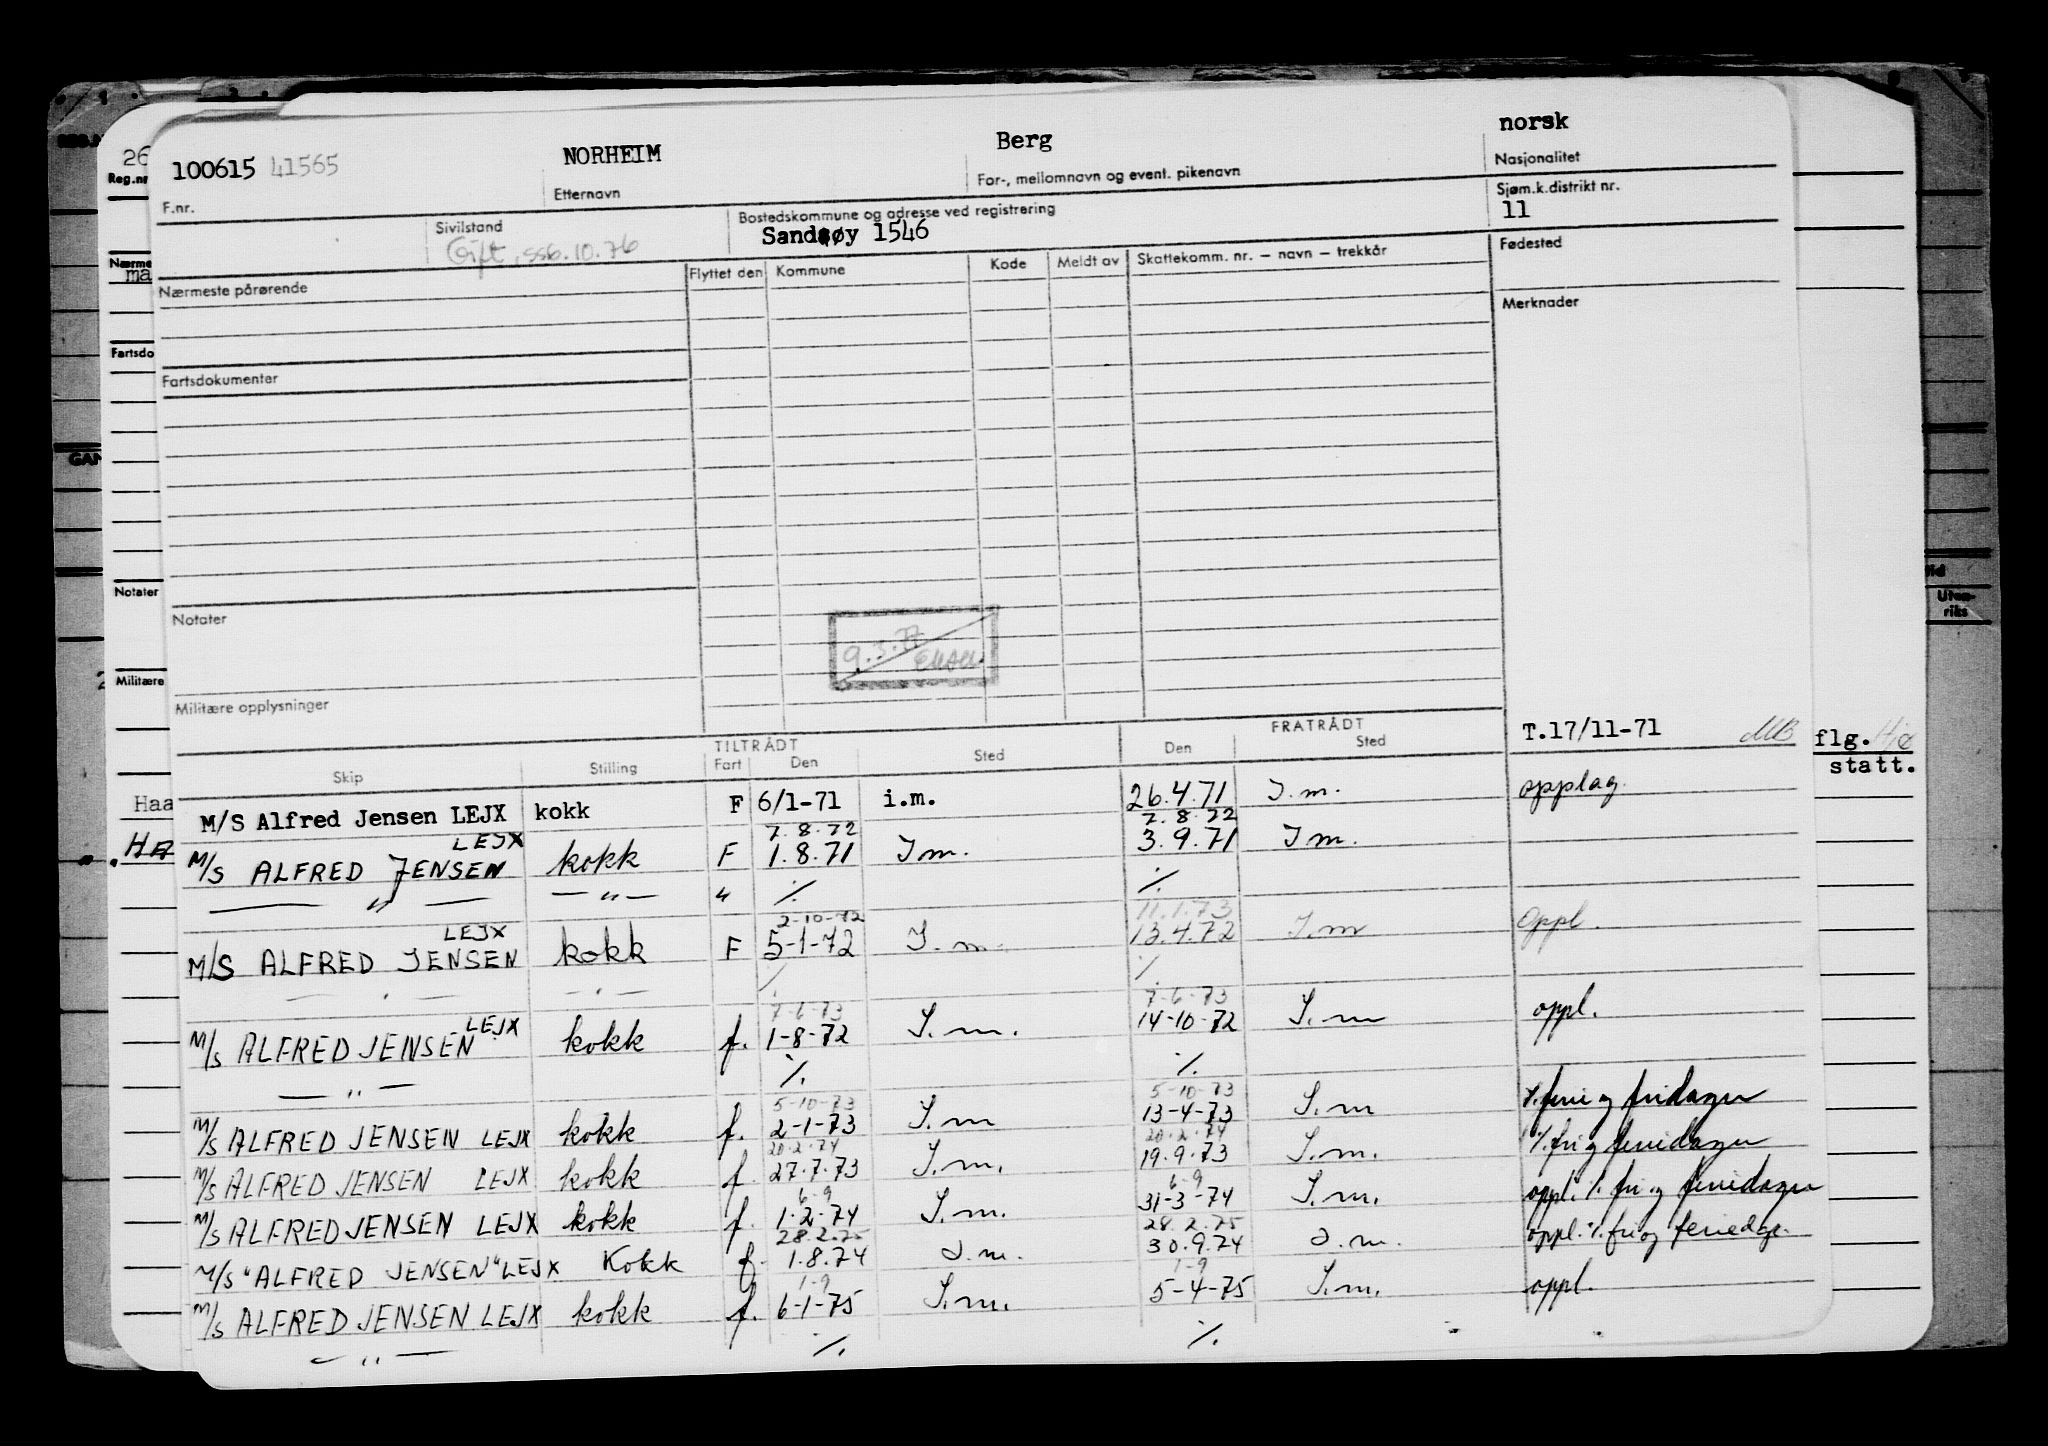 100615 41565 NORHEIM Berg norsk
F.nr. Etternavn For-, mellomnavn og event. pikenavn Nasjonalitet
Sivilstand Bostedskommune og adresse ved registrering Sjøm.k.distrikt nr.
Gift, ssb.10.76 Sandsøy 1546 11
Nærmeste pårørende Flyttet den Kommune Kode Meldt av Skattekomm. nr. – navn – trekkår Fødested
Merknader
Fartsdokumenter
Notater
9.3.77
Militære opplysninger
TILTRÅDT FRATRÅDT T.17/11-71 MB
Skip Stilling Fart Den Sted Den Sted
M/S Alfred Jensen LEJX kokk F 6/1-71 i.m. 26.4.71 I.m. opplag.
LEJX 7.8.72 7.8.72
M/S ALFRED JENSEN kokk F 1.8.71 I m. 3.9.71 I m.
— " — — " — " ·/. ·/.
LEJX 2-10-72 11.1.73
M/S ALFRED JENSEN kokk F 5-1-72 I.m. 13.4.72 I.m Oppl.
·/. ·/.
LEJX 7-6-73 7-6-73
M/S ALFRED JENSEN kokk f. 1-8-72 I.m. 14-10-72 I.m oppl.
— " — ·/. ·/.
5-10-73 5-10-73
M/S ALFRED JENSEN LEJX kokk f. 2-1-73 I.m 13-4-73 I.m ·/. ferie og fridager
20.2.74 20.2.74
M/S ALFRED JENSEN LEJX kokk f. 27.7.73 I.m. 19.9.73 I.m. ·/. fri og feriedager
6-9 6-9
M/S ALFRED JENSEN LEJX kokk f. 1.2.74 I.m. 31-3-74 I.m. oppl. ·/. fri og feriedager
28.2.75 28.2.75
M/S "ALFRED JENSEN" LEJX Kokk f. 1.8.74 I.m. 30.9.74 I.m. oppl. ·/. fri og feriedge.
1-9 1-9
M/S ALFRED JENSEN LEJX kokk f. 6-1-75 I.m. 5-4-75 I.m. oppl.
— " — ·/. ·/.
26
Reg.nr
Nærme
ma
Fartsdo
GAN
Notater
Militære
Haa
HA
flg.
statt.
Uten-
riks